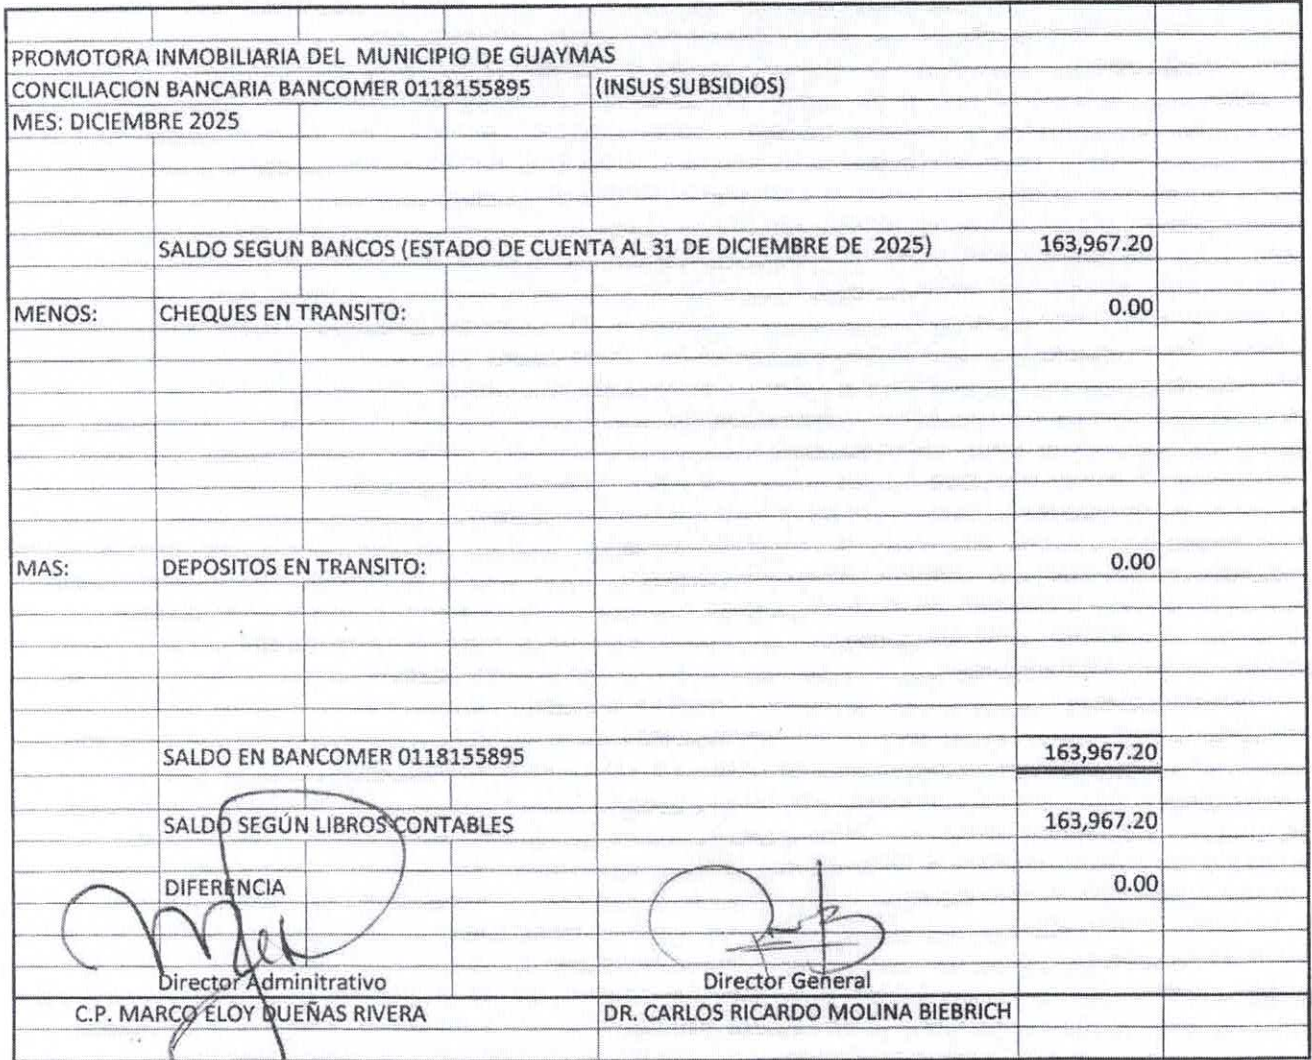 PROMOTORA INMOBILIARIA DEL MUNICIPIO DE GUAYMAS
CONCILIACION BANCARIA BANCOMER 0118155895 (INSUS SUBSIDIOS)
MES: DICIEMBRE 2025
SALDO SEGUN BANCOS (ESTADO DE CUENTA AL 31 DE DICIEMBRE DE 2025) 163,967.20
MENOS: CHEQUES EN TRANSITO: 0.00
MAS: DEPOSITOS EN TRANSITO: 0.00
SALDO EN BANCOMER 0118155895 163,967.20
SALDO SEGÚN LIBROS CONTABLES 163,967.20
DIFERENCIA 0.00
Director Adminitrativo Director General
C.P. MARCO ELOY DUEÑAS RIVERA DR. CARLOS RICARDO MOLINA BIEBRICH